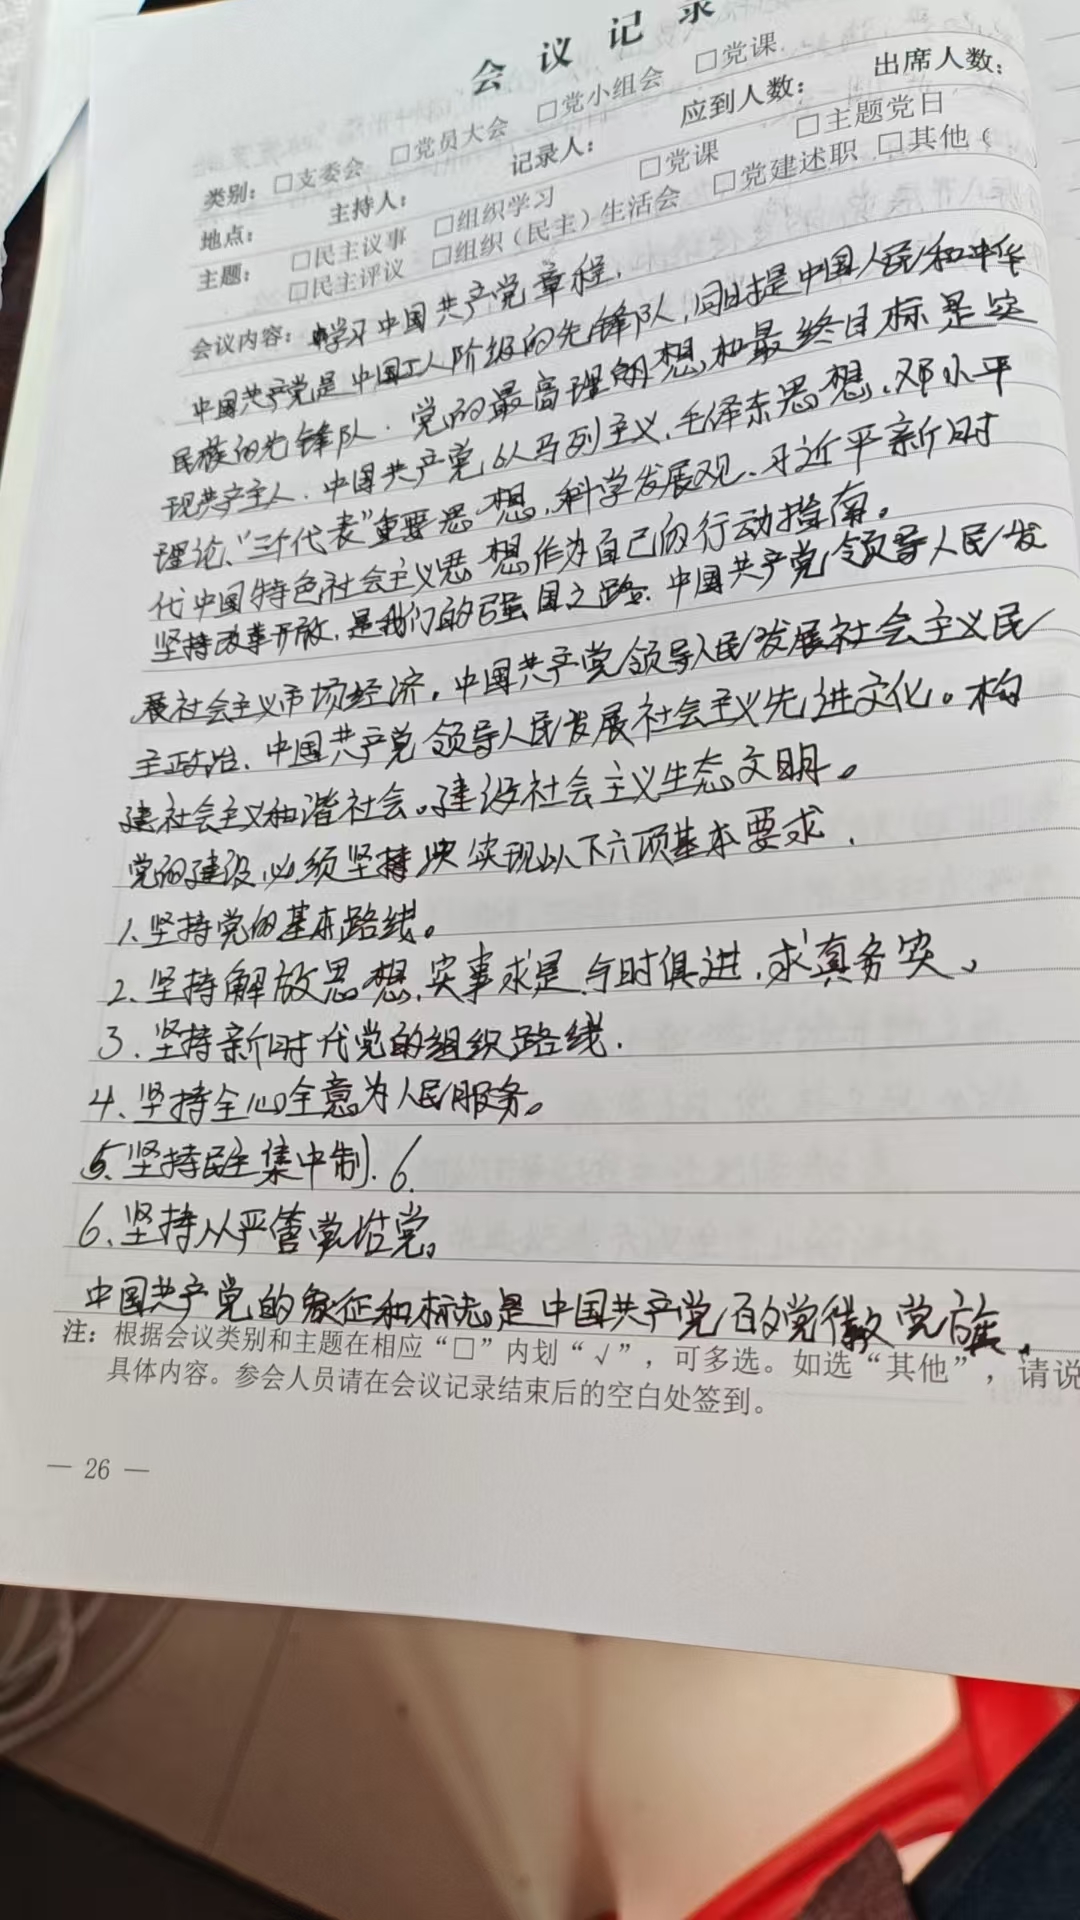 会议记录
类别：□支委会 □党员大会 □党小组会 □党课
地点： 主持人： 记录人： 应到人数： 出席人数：
主题： □民主议事 □组织学习 □党课 □主题党日
□民主评议 □组织（民主）生活会 □党建述职 □其他（
会议内容：学习中国共产党章程.
中国共产党是中国工人阶级的先锋队,同时是中国人民和中华
民族的先锋队.党的最高理想和最终目标是实
现共产主人.中国共产党,以马列主义、毛泽东思想、邓小平
理论、“三个代表”重要思想、科学发展观、习近平新时
代中国特色社会主义思想作为自己的行动指南。
坚持改革开放,是我们的强国之路.中国共产党领导人民发
展社会主义市场经济。中国共产党领导人民发展社会主义民
主政治.中国共产党领导人民发展社会主义先进文化。构
建社会主义和谐社会。建设社会主义生态文明。
党的建设必须坚持实现以下六项基本要求.
1.坚持党的基本路线。
2.坚持解放思想,实事求是,与时俱进,求真务实、
3.坚持新时代党的组织路线.
4.坚持全心全意为人民服务。
5.坚持民主集中制.6.
6.坚持从严管党治党。
中国共产党的象征和标志。是中国共产党的党徽党旗.
注：根据会议类别和主题在相应“□”内划“√”，可多选。如选“其他”，请说
具体内容。参会人员请在会议记录结束后的空白处签到。
— 26 —